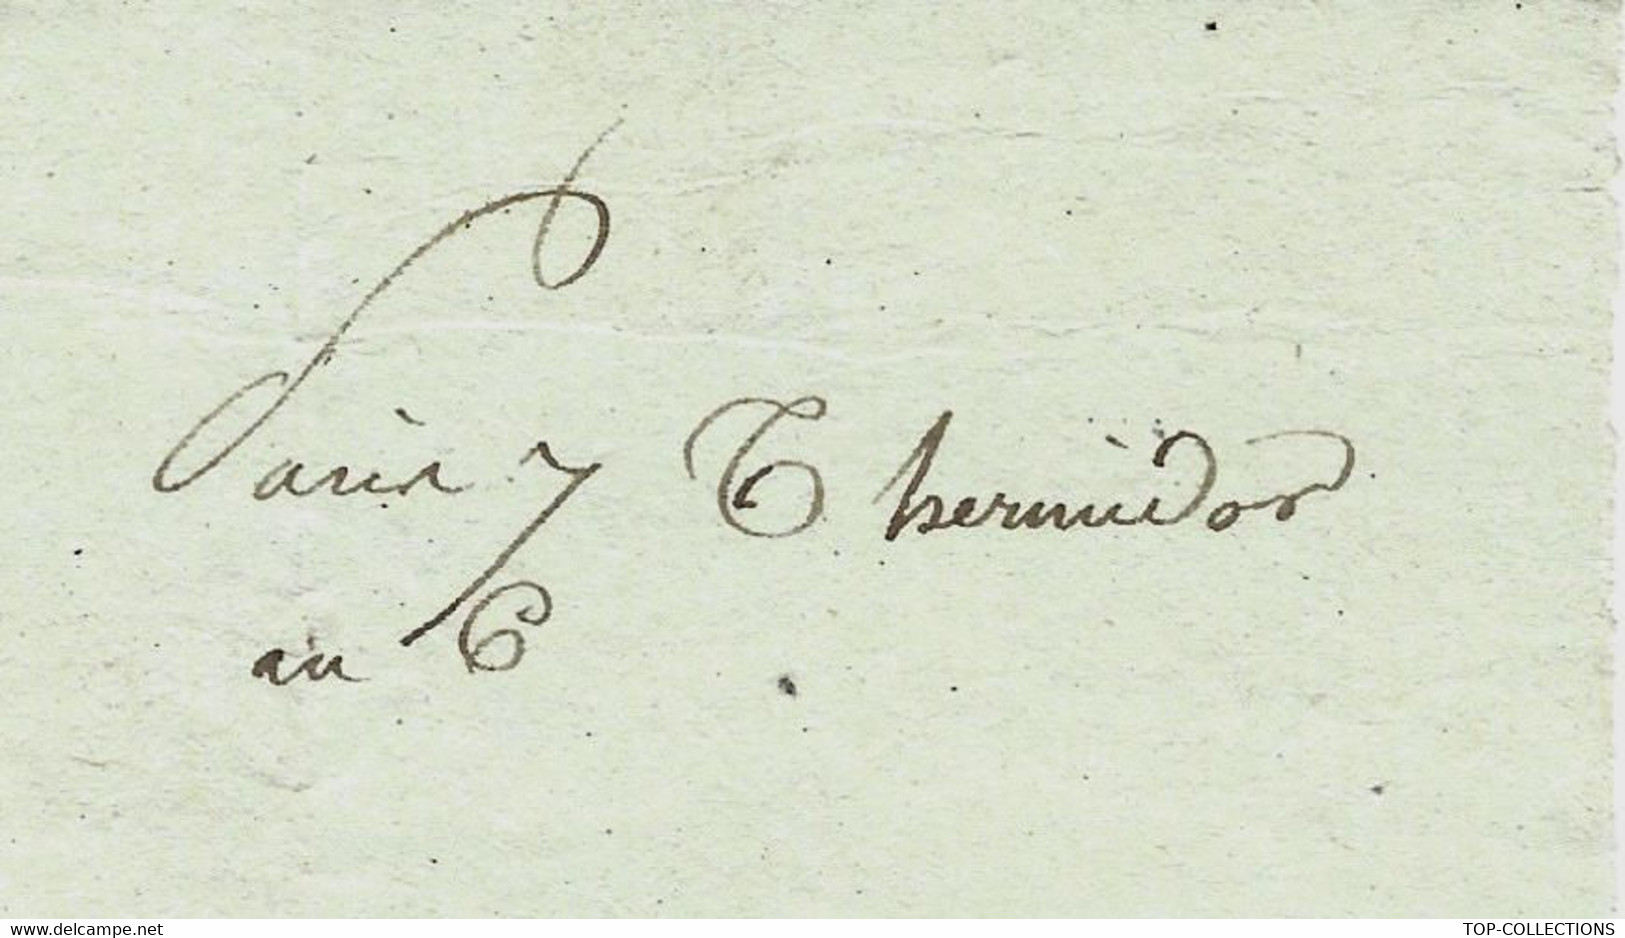 Paris 7 Thermidor
an 6
www.delcampe.net
TOP-COLLECTIONS